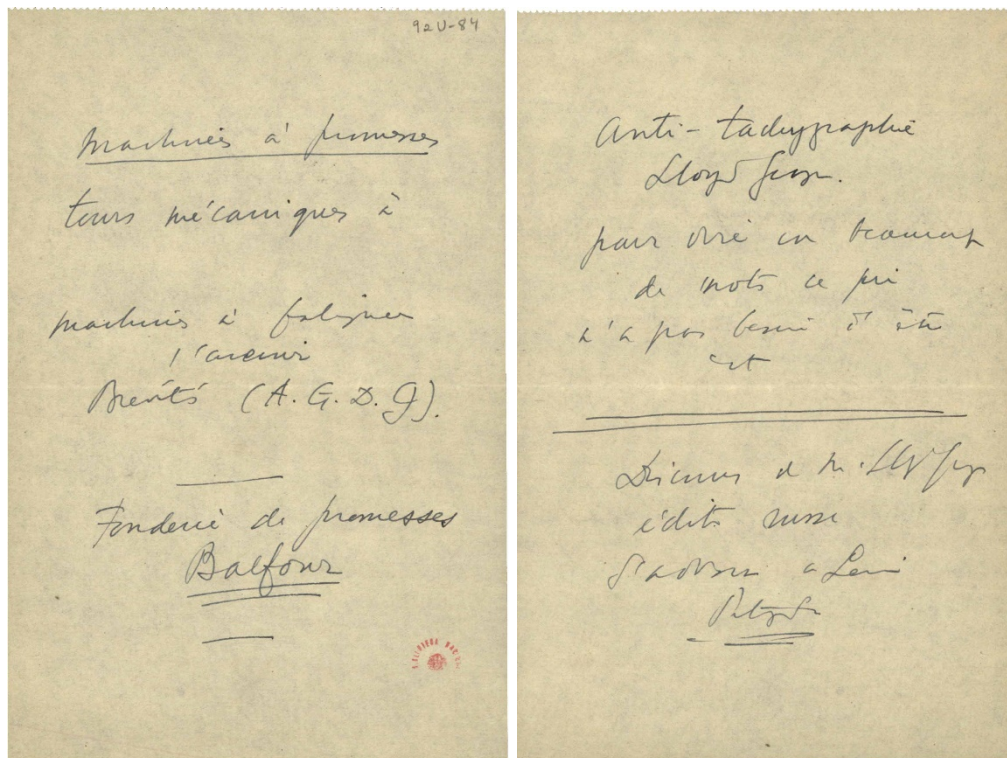 92U-84
Machines à promesses
tours mécaniques à
machines à fatiguer
l'avenir
Brevités (A. G. D. G).
Fonderie de promesses
Balfour
Anti-tachygraphie
Lloyd George.
pour dire en beaucoup
de mots ce qui
n'a pas besoin d'être
Discours de M. Lloyd George
édité russe
S'adresser à Lenine